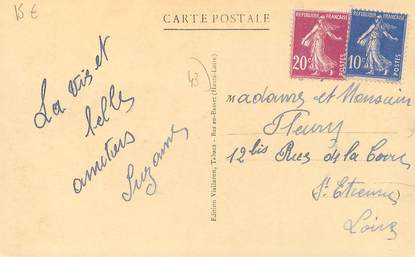 15 €
CARTE POSTALE
RÉPUBLIQUE FRANÇAISE
20c
POSTES
RÉPUBLIQUE FRANÇAISE
10c
POSTES
43
La vie et
belles
amitiés
Suzanne
Edition Vialaron, Tabacs - Bas-en-Basset (Haute-Loire)
Madame et Monsieur
Fleury
12 bis Rue de la
St Etienne
Loire